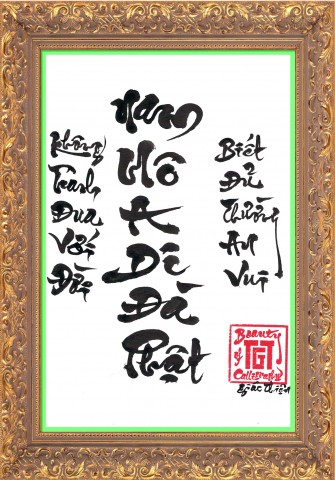 Không
Tranh
Đua
Với
Đời
Nam
Mô
A
Di
Đà
Phật
Biết
Đủ
Thường
An
Vui
Beauty
of
TGT
Calligraphy